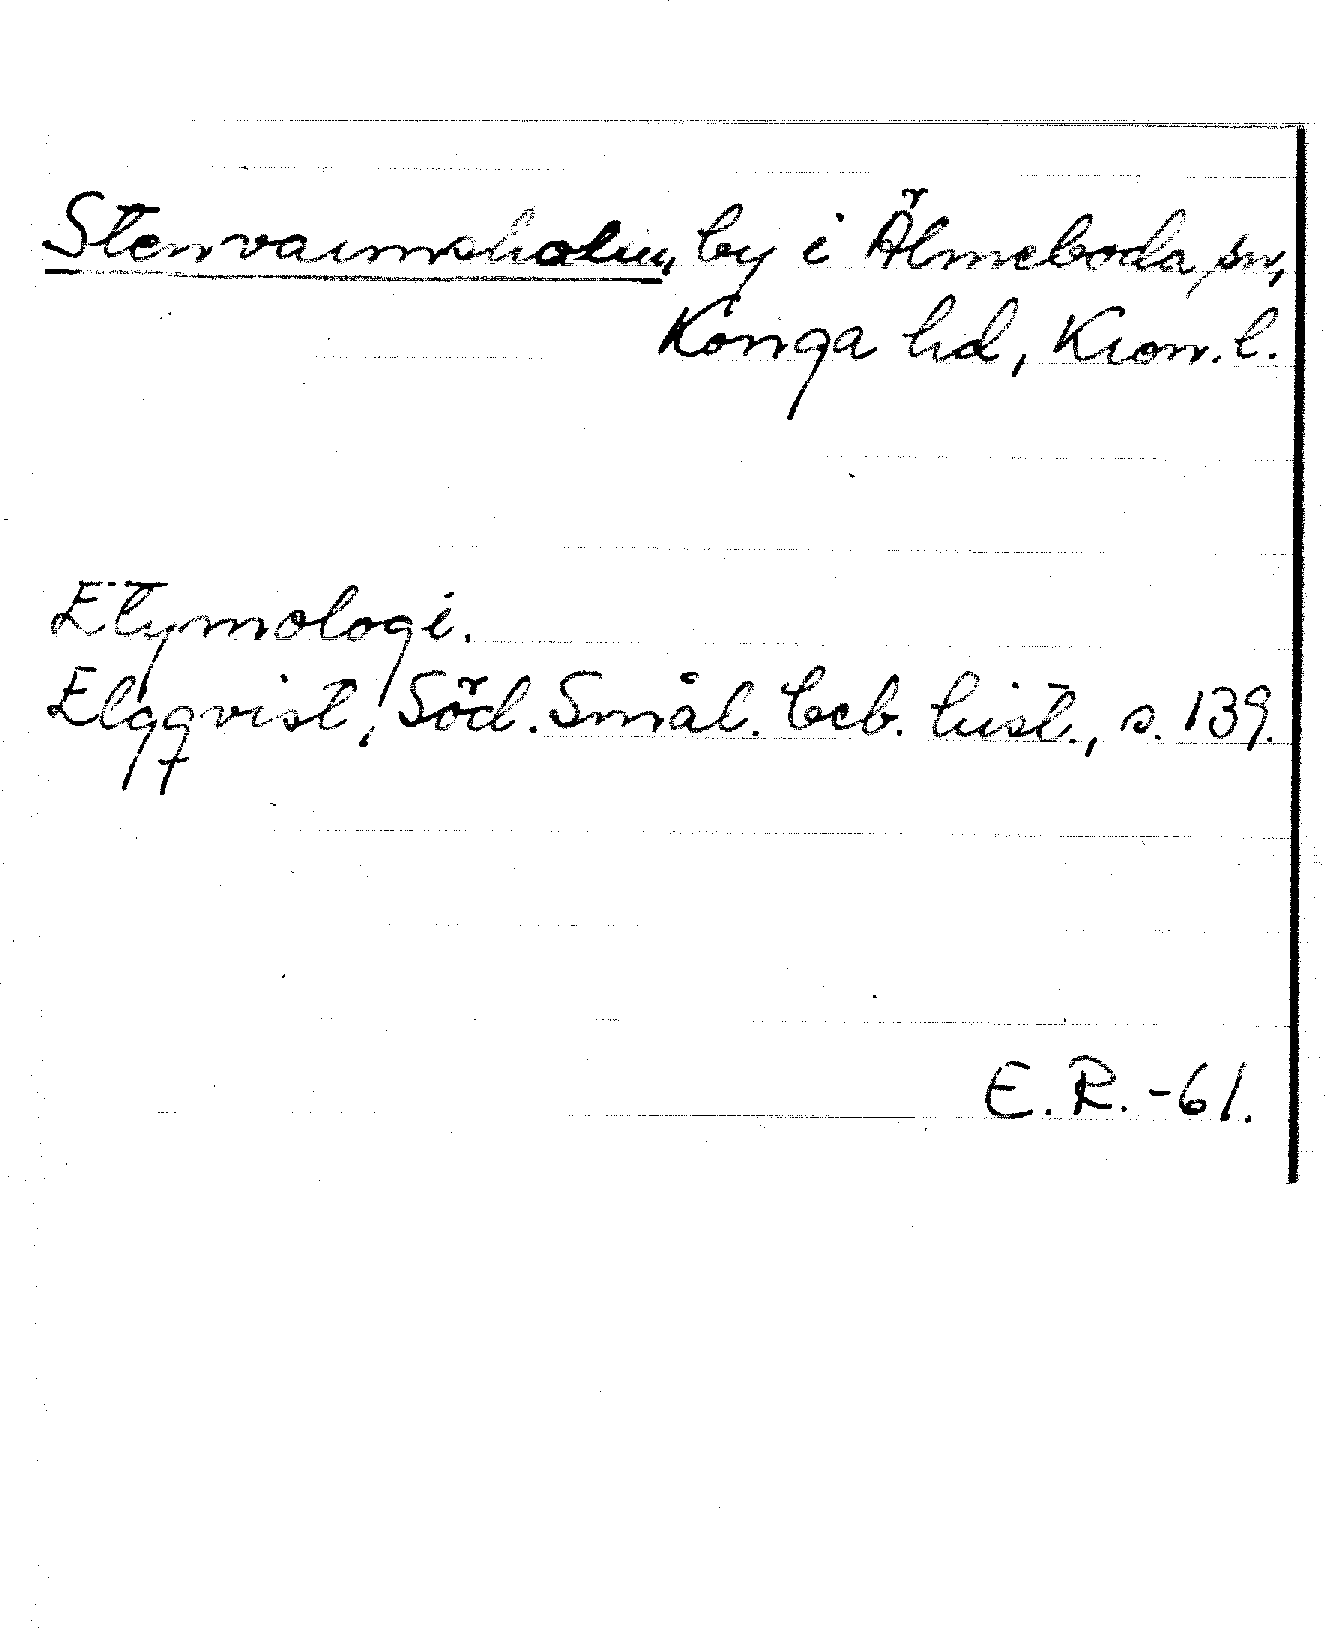 Stenvarmsholm, by i Älmeboda sn,
Konga hd, Kron. l.
Etymologi.
Elgqvist, Söd. Smål. beb. hist., s. 139.
E. R. -61.